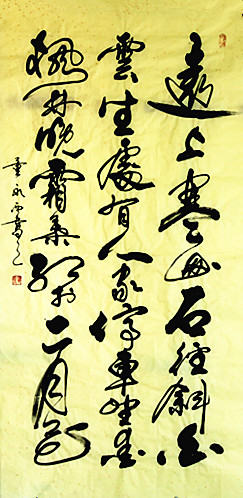 遠上寒山石徑斜白
雲生處有人家停車坐愛
楓林晚霜葉紅於二月花